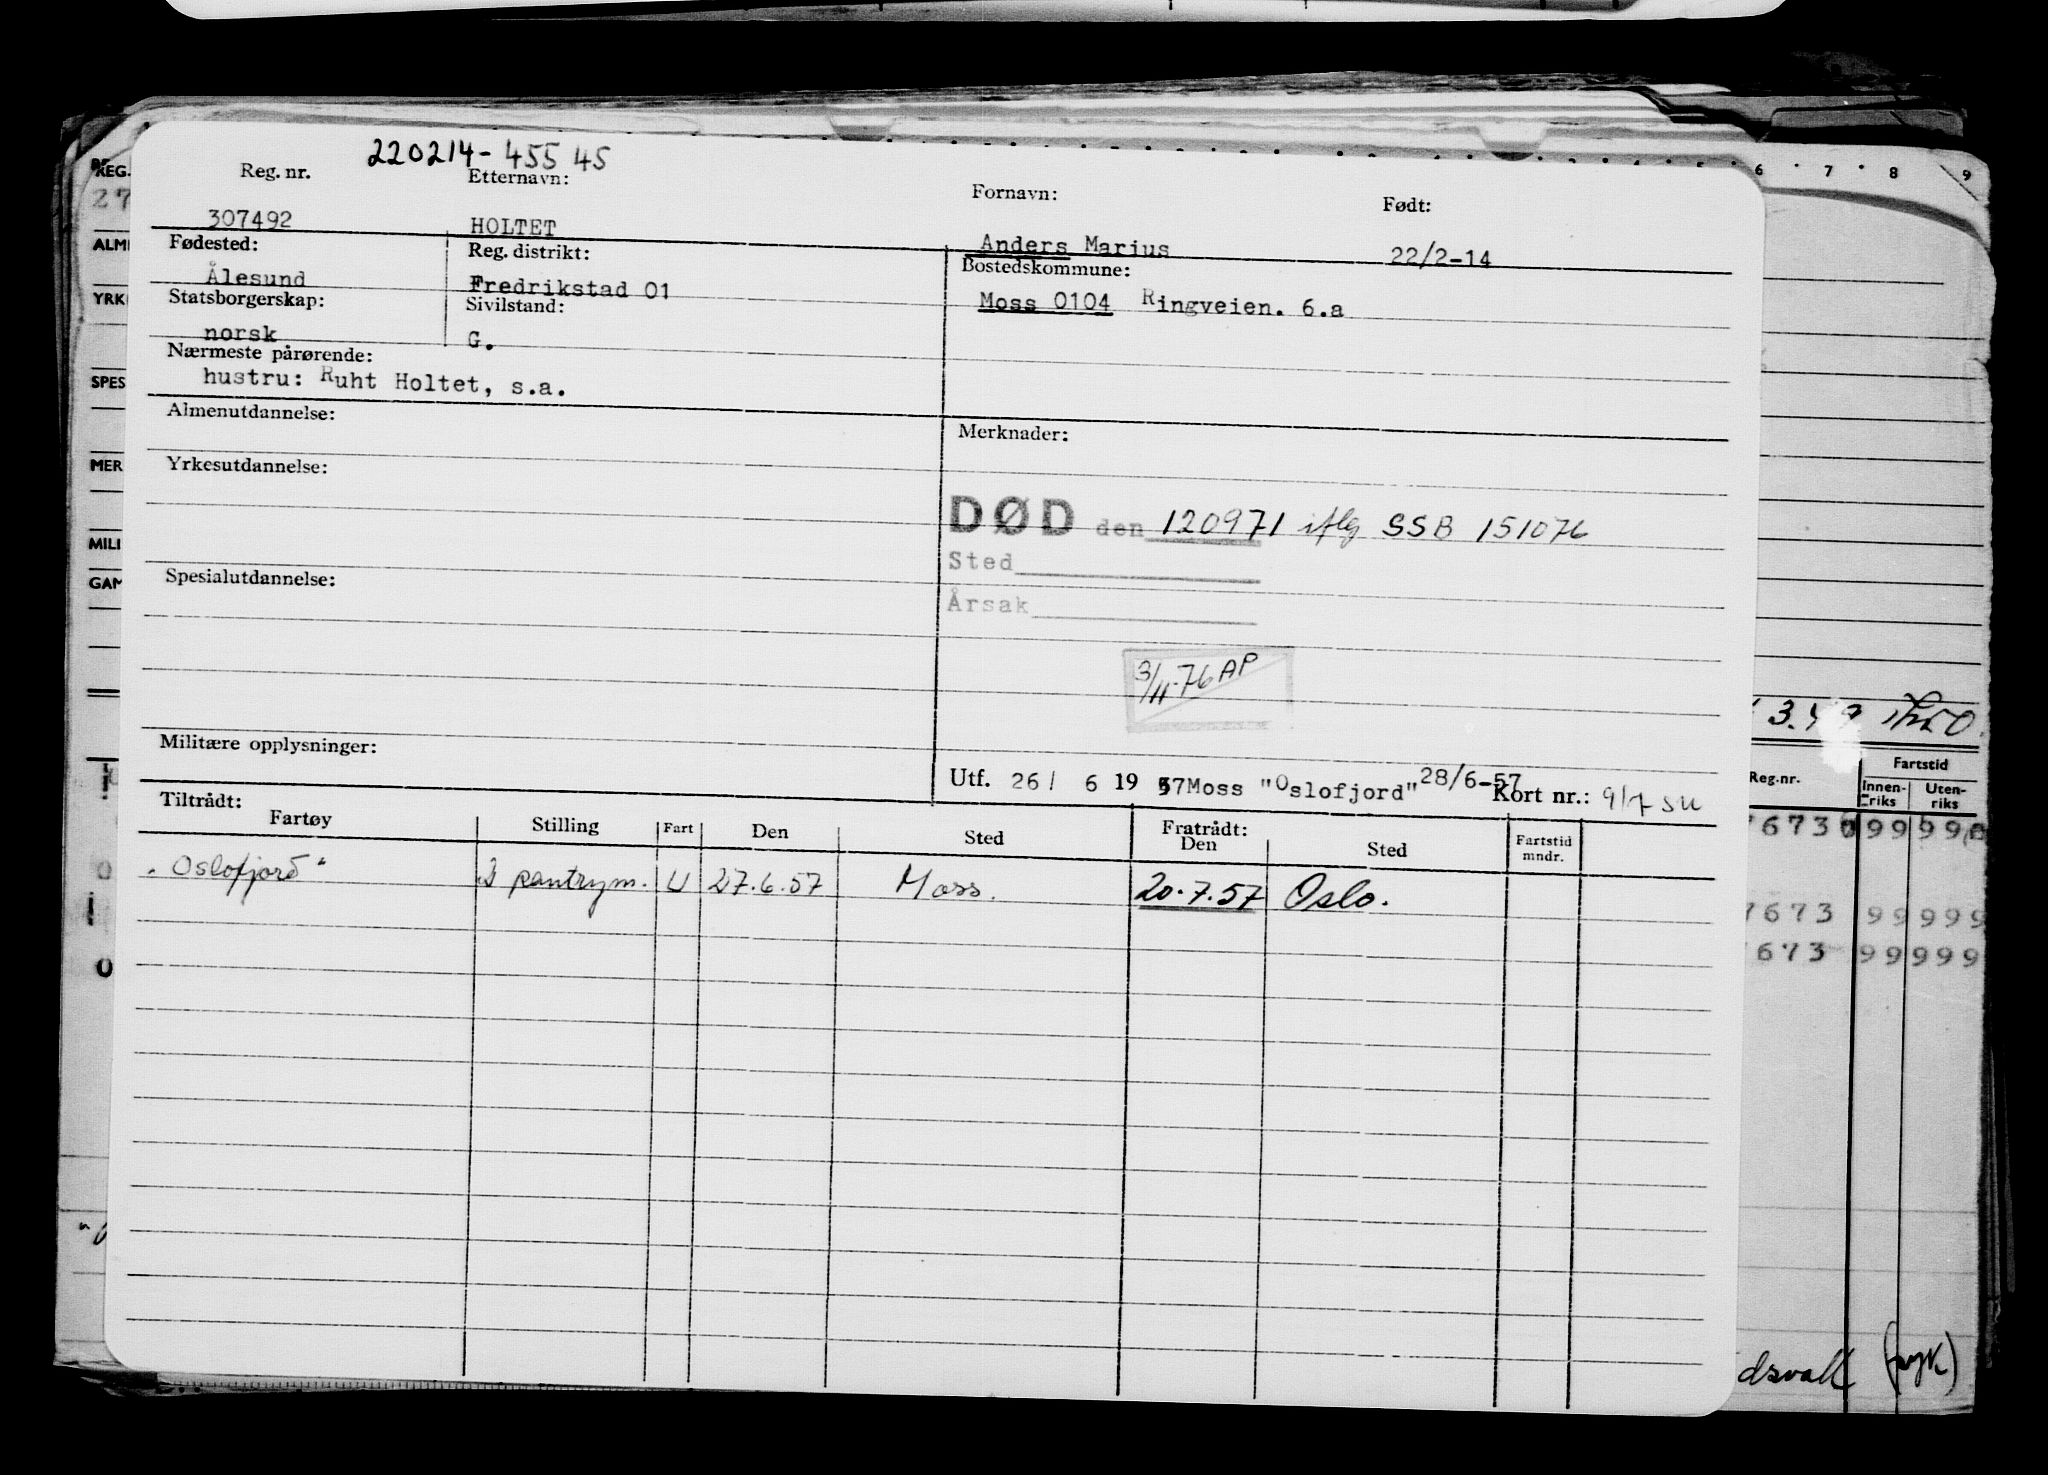 220214-455 45
Reg. nr. Etternavn: Fornavn: Født:
307492 HOLTET Anders Marius 22/2-14
Fødested: Reg. distrikt: Bostedskommune:
Ålesund Fredrikstad 01 Moss 0104 Ringveien. 6.a
Statsborgerskap: Sivilstand:
norsk G.
Nærmeste pårørende:
hustru: Ruht Holtet, s.a.
Almenutdannelse: Merknader:
Yrkesutdannelse:
DØD den 120971 iflg SSB 151076
Sted
Årsak
Spesialutdannelse:
3/11-76 AP
Militære opplysninger:
Utf. 26/ 6 19 57 Moss "Oslofjord" 28/6-57 Kort nr.: 9/7 SU
Tiltrådt: Fratrådt:
Fartøy Stilling Fart Den Sted Den Sted Fartstid mndr.
"Oslofjord" pantrym. U 27.6.57 Moss. 20.7.57 Oslo.
REG.
27
ALM
YRK
SPES
MER
MILI
GAM
6 7 8 9
Reg.nr. Fartstid
Innen-riks Uten-riks
7673 99 999
673 99 999